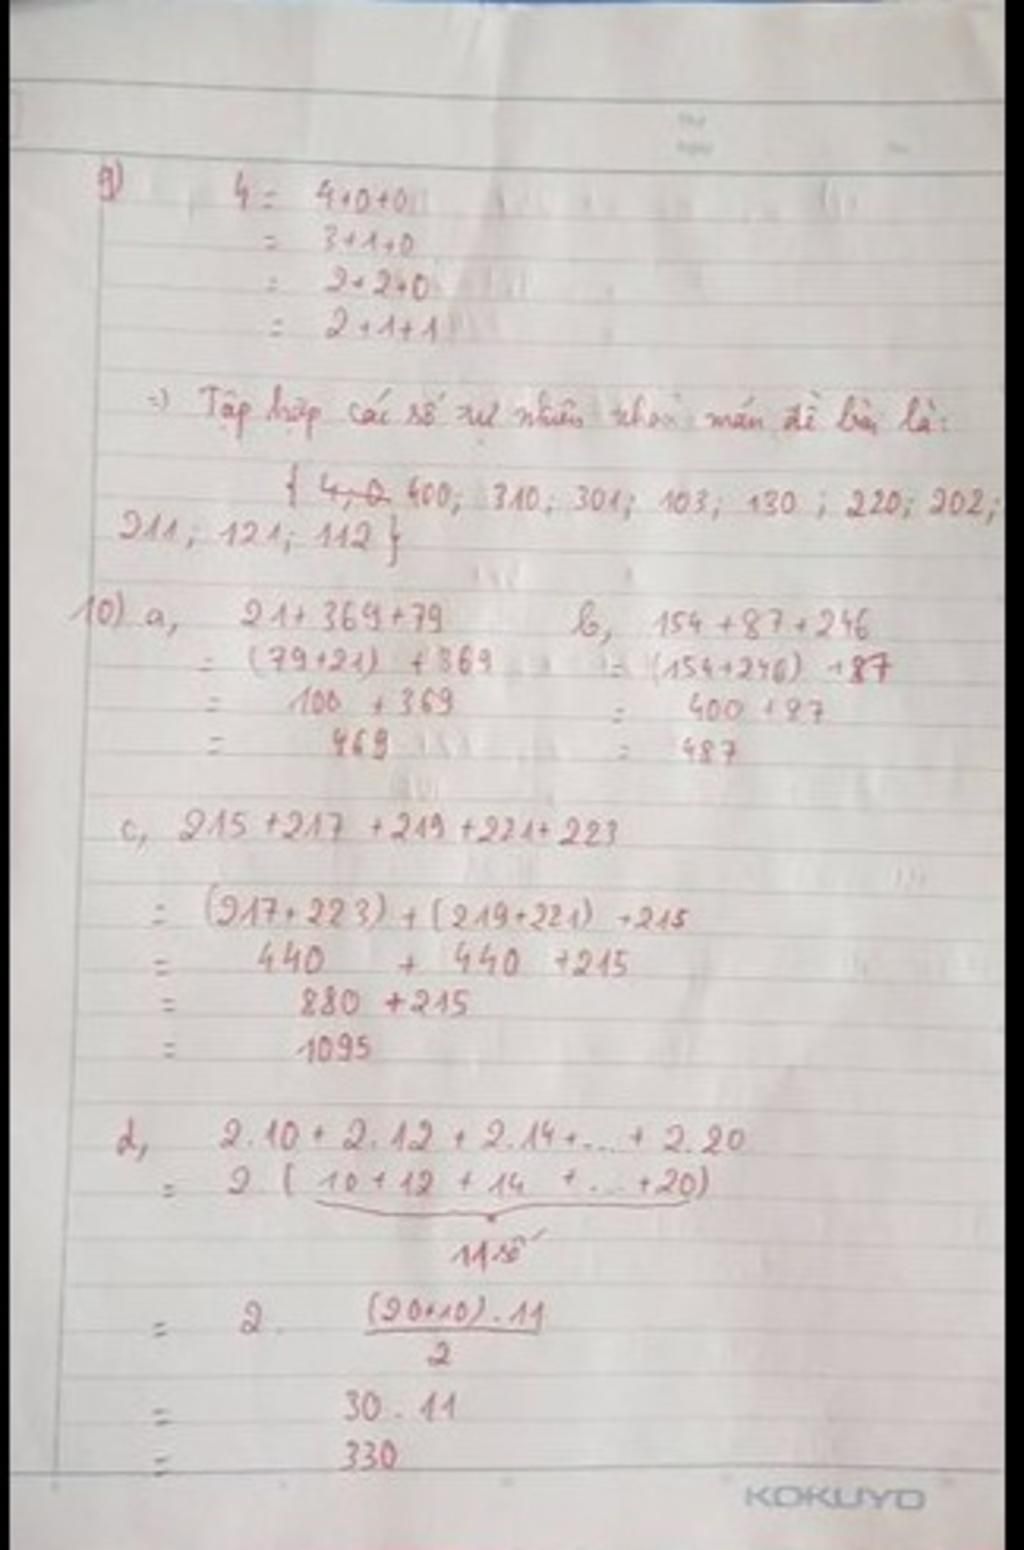 9) 4 = 4+0+0
= 3+1+0
= 2+2+0
= 2+1+1
=) Tập hợp các số tự nhiên thoả mán đề bài là:
{ 4, 0 400; 310; 301; 103; 130; 220; 202;
211; 121; 112 }
10) a, 21+ 369+79 b, 154 +87+246
= (79+21) +369 = (154+246) +87
= 100 +369 = 400 +87
= 469 = 487
c, 215 +217 +219 +221+ 223
= (217+223) + (219+221) +215
= 440 + 440 +215
= 880 +215
= 1095
d, 2.10 + 2.12 + 2.14+... + 2.20
= 2 ( 10 +12 + 14 + ... +20)
11 số
= 2. (20+10).11
2
= 30.11
= 330
KOKUYO